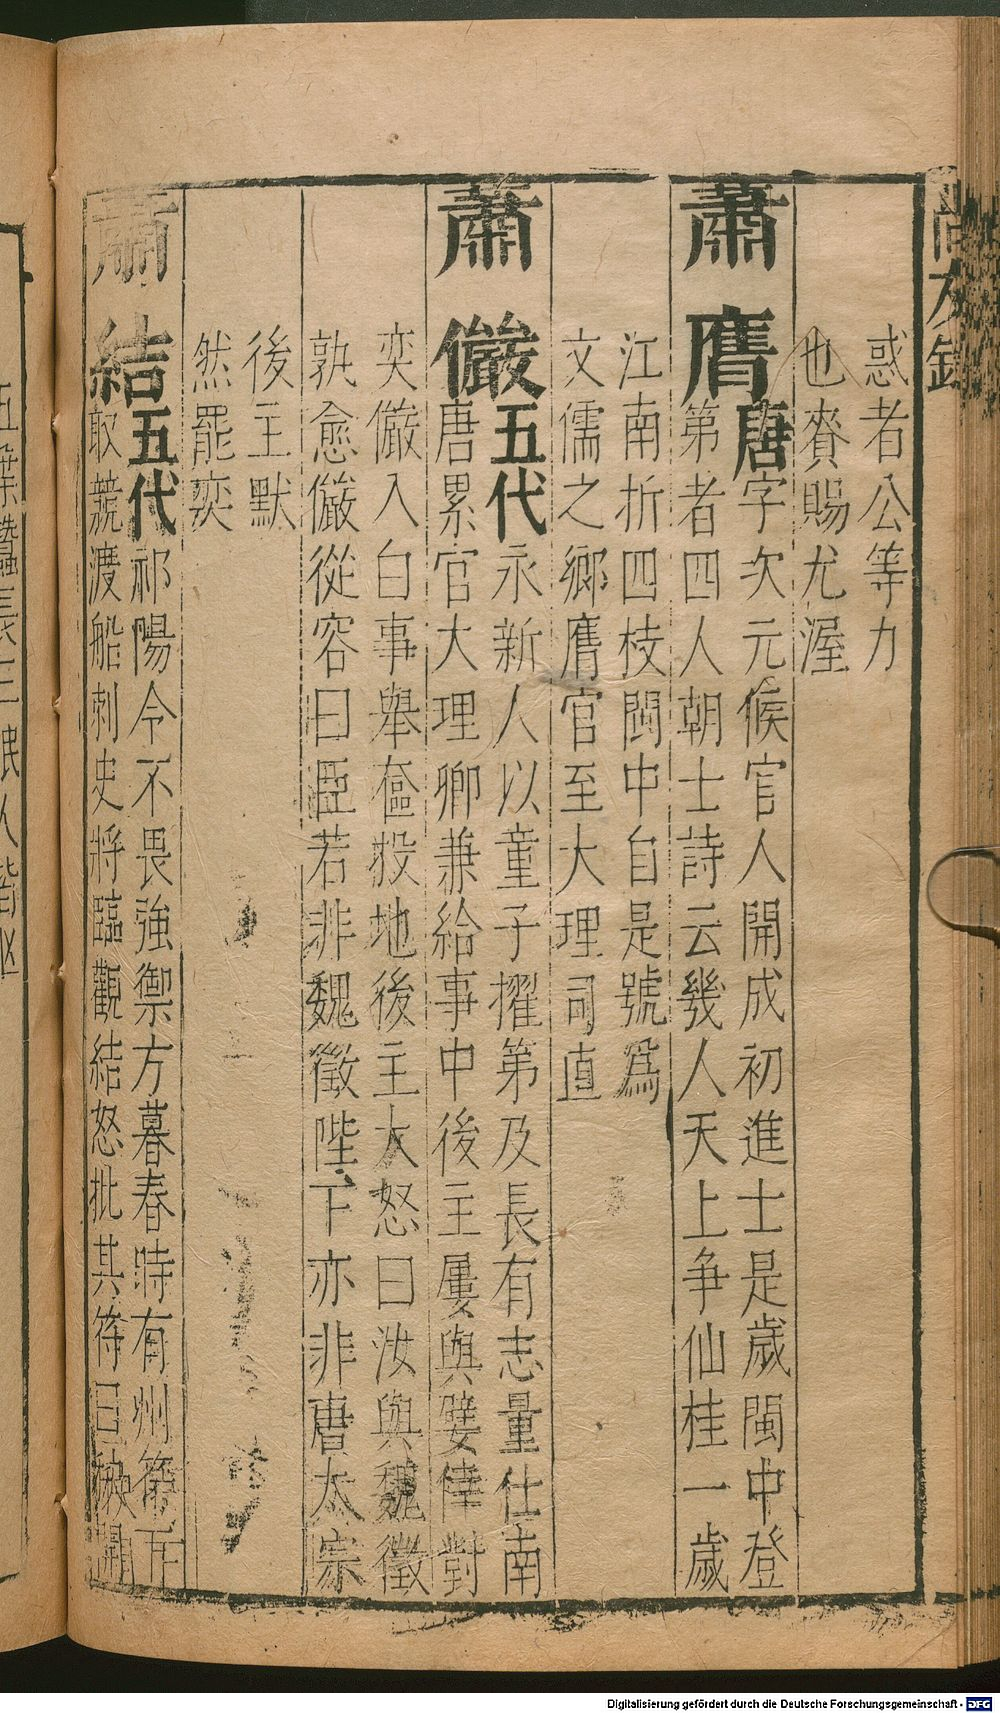 尚友錄
惑者公等力
也賚賜尤渥
蕭膺唐字次元候官人開成初進士是歲閩中登
第者四人朝士詩云幾人天上争仙桂一歲
江南折四枝閩中自是號爲
文儒之鄉膺官至大理司直
蕭儼五代永新人以童子擢第及長有志量仕南
唐累官大理卿兼給事中後主屢與嬖倖對
奕儼入白事舉奩投地後主大怒曰汝與魏徵
孰愈儼從容曰臣若非魏徵陛下亦非唐太宗
後主默
然罷奕
蕭結五代祁陽令不畏強禦方暮春時有州符下
取競渡船刺史將臨觀結怒批其符曰秧開
五葉蠶長三眠人皆
Digitalisierung gefördert durch die Deutsche Forschungsgemeinschaft - DFG